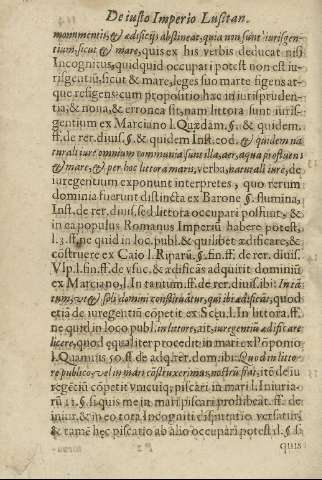 De iusto Imperio Lusitan.
monumentis, & ædificijs abstineat, quia non sunt iurisgen-
tium, sicut & mare, quis ex his verbis deducat nisi
Incognitus, quidquid occupari potest non est iu-
risgentiũ, sicut & mare, leges suo marte figens at-
que refigens: cum propositio hæc in iurispruden-
tia, & noua, & erronea sit, nam littora sunt iuris-
gentium ex Marciano l. Quædam. §. & quidem.
ff. de rer. diuis. §. & quidem Inst. eod. & quidem na
turali iure omnium communia sunt illa, aer, aqua profluens
& mare, & per hoc littora maris, verba, naturali iure, de
iuregentium exponunt interpretes, quo rerum
dominia fuerunt distincta ex Barone. §. flumina,
Inst. de rer. diuis. sed littora occupari possunt, &
in ea populus Romanus Imperiũ habere potest,
l. 3. ff. ne quid in loc. publ. & quilibet ædificare, &
costruere ex Caio l. Riparũ. §. fin. ff. de rer. diuis.
Vlp. l. fin. ff. de vsuc. & ædificãs adquirit dominiũ
ex Marciano, l. In tantum. ff. de rer. diuis. ibi: In tã
tum, vt & soli domini constituãtur, qui ibi ædificãt, quod
etiã de iuregentiũ cõpetit ex Scęu. l. In littora. ff.
ne quid in loco publ. in littore, ait, iuregentiũ ædificare
licere, quod equaliter procedit in mari ex Põponio
l. Quamuis 50. ff. de adq. rer. dom. ibi: Quod in litto-
re publico, vel in mari cõstruxerimus, nostrũ fiat, itẽ de iu
regẽtiũ cõpetit vnicuiq; piscari in mari l. Iniuria-
rũ 13. §. si quis me in mari piscari prohibeat. ff. de
iniur. & in eo tota Incogniti disputatio versatur,
& tamẽ hęc piscatio ab alio occupari potest d. §. si
quis